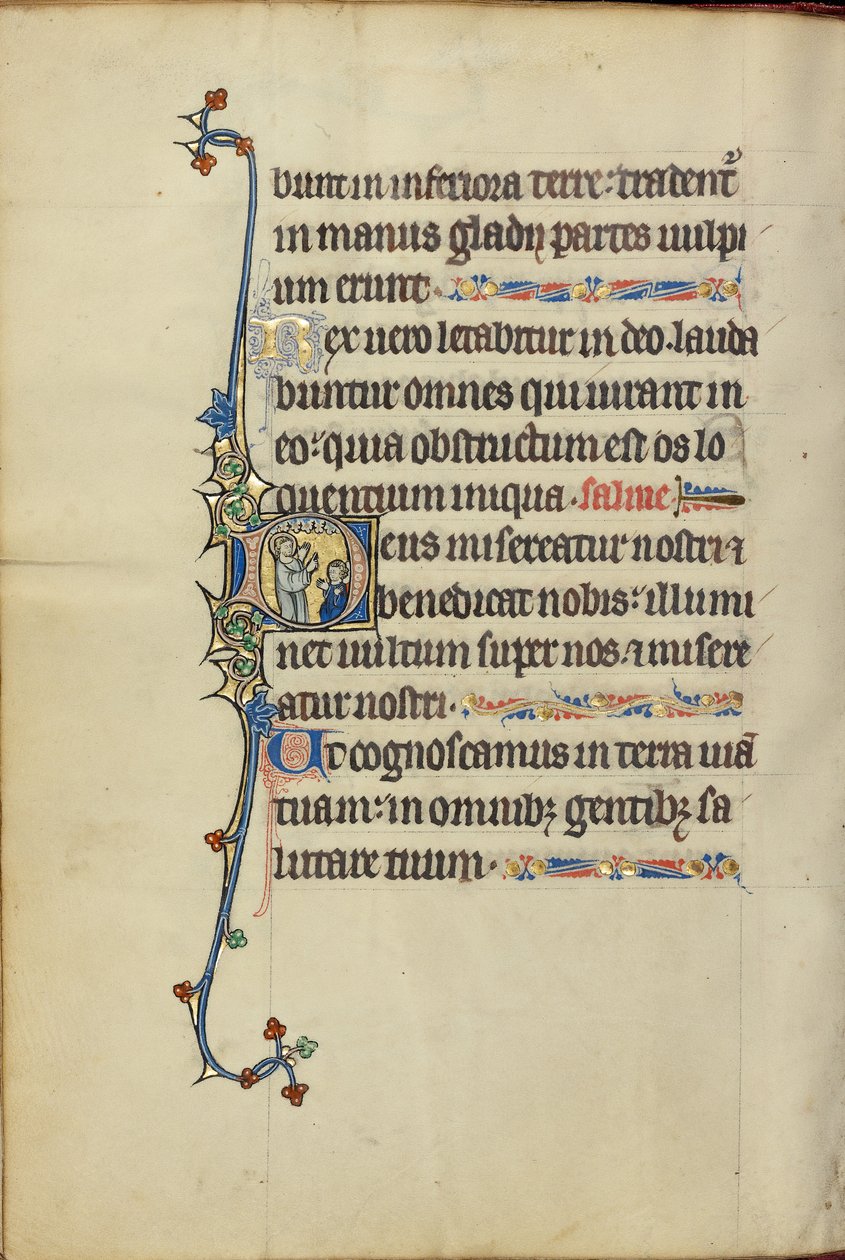 bunt in inferiora terre: tradent᷑
in manus gladij partes uulpi
um erunt.
Rex uero letabitur in deo. lauda
buntur omnes qui iurant in
eo: quia obstructum est os lo
quentium iniqua. salme.
Deus misereatur nostri ⁊
benedicat nobis: illumi
net uultum super nos. ⁊ misere
atur nostri.
Ut cognoscamus in terra uiā
tuam: in omnibꝫ gentibꝫ sa
lutare tuum.